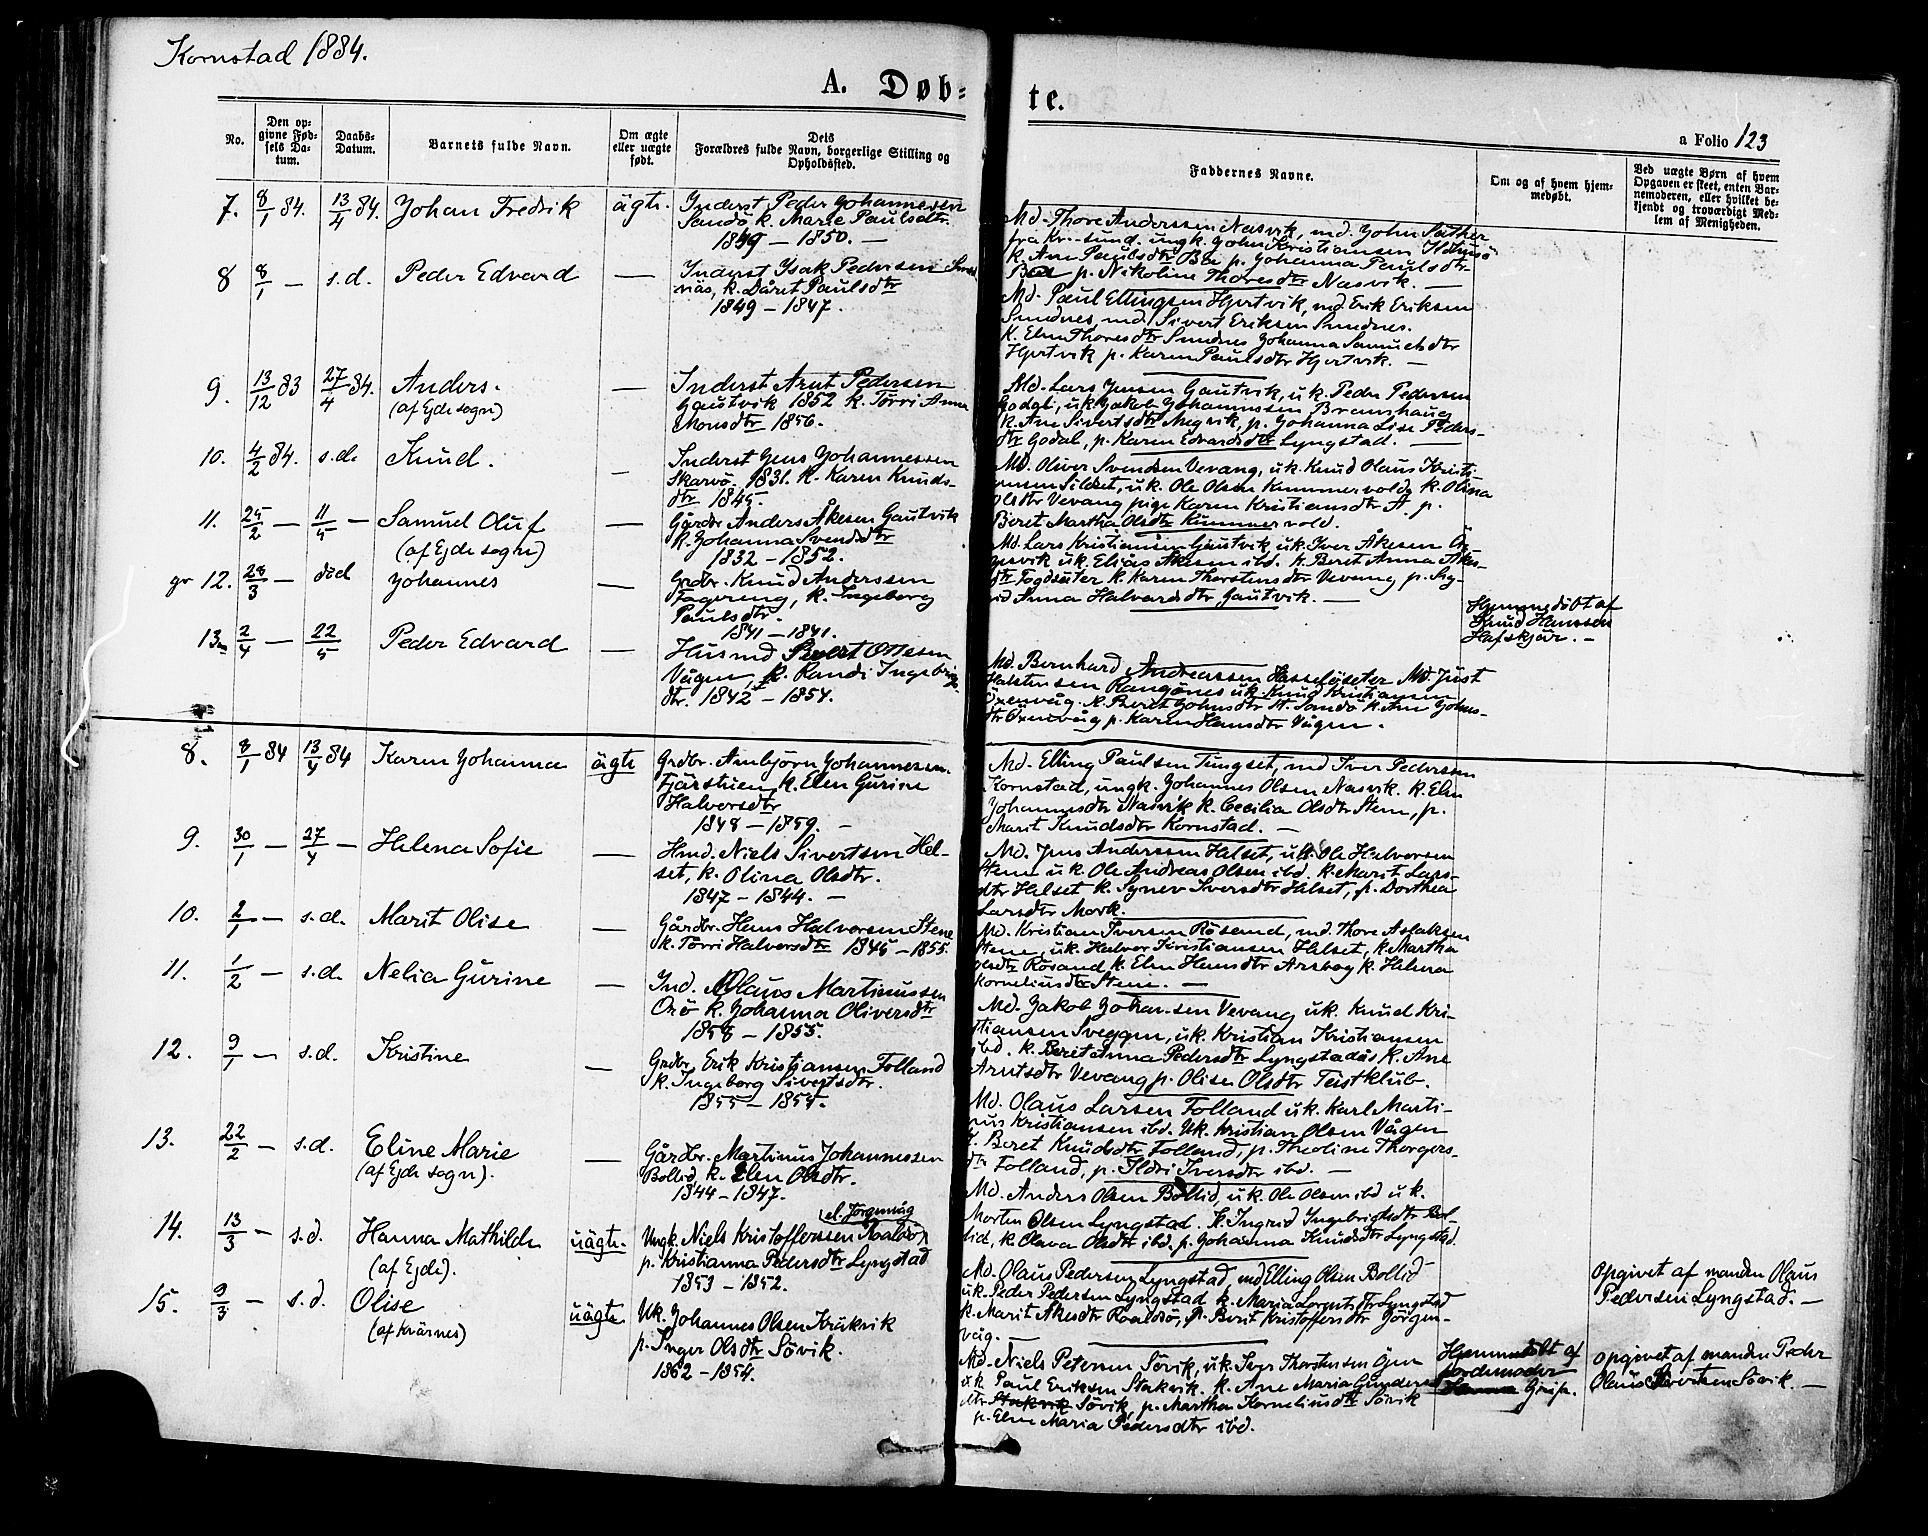 Kornstad 1884.
A. Døb-te.
a Folio 123
No.
Den op-
givne Fød-
sels Da-
tum.
Daabs-
Datum.
Barnets fulde Navn.
Om ægte
eller uægte
født.
Dets
Forældres fulde Navn, borgerlige Stilling og
Opholdssted.
Faddernes Navne.
Om og af hvem hjem-
medøbt.
Ved uægte Børn af hvem
Opgaven er skeet, enten Bar-
nemoderen, eller hvilket be-
kjendt og troværdigt Med-
lem af Menigheden.
7. 8/1 84. 13/4 84. Johan Fredrik ägte.
Inderst Peder Johannesen
Sandö k. Marie Paulsdtr.
1849 – 1850. —
Md. Thore Anderssen Nasvik, md. John Säther
fra Kr.-sund. ungk. John Kristiansen
k. Ane Paulsdtr Böe p. Johanna Paulsdtr
p. Nikoline Thoresdtr Nasvik. —
8 8/1 — s.d. Peder Edvard —
Inderst Isak Pedersen
näs, k. Dåret Paulsdtr
1849 – 1847.
Md. Paul Ellingsen Hjertvik, md Erik Eriksen
Sundnes, md. Sivert Eriksen Sundnes.
K. Elen Thoresdtr Sundnes Johanna Samuelsdtr
Hjertvik p. Karen Paulsdtr Hjertvik. —
9. 13/12 83 27/4 84. Anders. —
(af Ejde sogn)
Inderst Arnt Pedersen
Gautvik 1852 k. Törri Anna
Monsdtr 1856.
Md. Lars Jensen Gautvik, uk. Peder Pedersen
Godal, uk. Jakob Johannessen Brunshaug
k. Ane Sivertsdtr Megvik, p. Johanna Lise Peders-
dtr Godal, p. Karen Edvardsdtr Lyngstad. —
10. 4/2 84. s.d. Knud. —
Inderst Jens Johannessen
Skarvö. 1831. K. Karen Knuds-
dtr 1845.
Md. Oliver Svendsen Vevang, uk. Knud Olaus Kristi-
ansen Sildset, uk. Ole Olsen Kummervold, k. Olina
Olsdtr Vevang pige Karen Kristiansdtr St. p.
Beret Martha Olsdtr Kummervold.
11. 25/2 — 11/5 — Samuel Oluf —
(af Ejde sogn)
Gårdbr Anders Åkesen Gautvik
k. Johanna Svendsdtr
1832 – 1852.
Md. Lars Kristiansen Gautvik, uk. Iver Åkesen
uk. Elias Åkesen ibd. k. Beret Anna Åkes-
dtr Fogdsäter k. Karen Thorstensdtr Vevang p.
Anna Halvardsdtr Gautvik. —
gr 12. 28/3 — död Johannes —
Grdbr. Knud Anderssen
Fagereng, k. Ingeborg
Paulsdtr.
1841 – 1841.
Hjemmedöbt af
Knud Hanssen
Hafskjär. —
13. 2/4 — 22/5 Peder Edvard —
Husmd Sivert Ottesen
Vågen, k. Randi Ingebrigts-
dtr. 1842 – 1854.
Md. Bernhard Andreassen Hasselöseter Md. Just
Halstensen Rangönes uk. Knud Kristiansen
Öxenvåg. K. Berit Johnsdtr St. Sandö k. Ane Johns-
dtr Öxenvåg p. Karen Hansdtr Vågen.
8. 8/1 84 13/4 84 Karen Johanna ägte
Grdbr. Arnbjörn Johannessen
Fjärstuen, k. Elen Gurine
Halvorsdtr
1848 – 1859. —
Md. Elling Paulsen Tungset, md Iver Pedersen
Kornstad, ungk. Johannes Olsen Nasvik. k. Elen
Johannesdtr Nasvik k. Cecilia Olsdtr Stene, p.
Marit Knudsdtr Kornstad. —
9. 30/1 — 27/4 — Helena Sofie —
Hmd. Niels Sivertsen Hel-
set, k. Olina Olsdtr.
1847 – 1844. —
Md. Jens Anderssen Helset, uk. Ole Halvorsen
Stene uk. Ole Andreas Olsen ibd. K. Marit Lars-
dtr Helset k. Synev Iversdtr Helset, p. Dorthea
Larsdtr Mork.
10. 2/1 — s.d. Marit Olise —
Gårdbr. Hans Halvorsen Stene
k. Törri Halvorsdtr 1845 – 1855.
Md. Kristian Iversen Rösand, md. Thore Aslaksen
Stene, uk. Halvor Kristiansen Helset, k. Martha
Olsdtr Rösand k. Elen Hansdtr Arsbog k. Helena
Korneliusdtr Stene. —
11. 1/2 — s.d. Nelia Gurine —
Ind. Olaus Martinussen
Orö k. Johanna Oliversdtr
1858 – 1855.
Md. Jakob Johansen Vevang uk. Knud Kri-
stiansen Sveggen, uk. Kristian Kristiansen
ibd. k. Beret Anna Pedersdtr Lyngstadås k. Ane
Arntsdtr Vevang p. Olise Olsdtr Teistklub.
12. 9/1 — s.d. Kristine —
Grdbr. Erik Kristiansen Folland
k. Ingeborg Sivertsdtr.
1855 – 1854.
Md. Olaus Larsen Folland uk. Karl Marti-
nus Kristiansen ibd. Uk. Kristian Olsen Vågen
k. Beret Knudsdtr Folland, p. Theoline Thorgers-
dtr Folland, p. Ildri Iversdtr ibd. —
13. 22/2 — s.d. Eline Marie —
(af Ejde sogn).
Gårdbr. Martinus Johannessen
Bollid, k. Elen Olsdtr.
1844 – 1847.
Md. Anders Olsen Bollid, uk. Ole Olsen ibd uk.
Morten Olsen Lyngstad. k. Ingrid Ingebrigtsdtr Bol-
lid, k. Olava Olsdtr ibd. p. Johanna Knudsdtr Lyngstad.
14. 13/3 — s.d. Hanna Mathilde uägte.
(af Ejde).
el. Jörgenvåg
Ungk. Niels Kristofferssen Roaldsö
p. Kristianna Pedersdtr Lyngstad
1853 – 1852.
Md. Olaus Pedersen Lyngstad, md Elling Olsen Bollid
uk. Peder Pedersen Lyngstad k. Maria Lorentsdtr Lyngstad
k. Marit Akesdtr Roaldsö, p. Berit Kristoffersdtr Jörgen-
våg. —
Opgivet af manden Olaus
Pedersen Lyngstad. —
15. 9/3 — s.d. Olise uägte
(af Kvärnes)
Uk. Johannes Olsen Kråkvik
p. Inger Olsdtr Sövik.
1862 – 1854.
Md. Niels Petersen Sövik, uk. Iver Thorstensen Ögen
uk Paul Eriksen Stakvik. k. Ane Maria Gunders-
dtr Stakvik Sövik, p. Martha Korneliusdtr Sövik
p. Elen Maria Pedersdtr ibd.
Hjemmedöbt af
Jordemoder
Grip.
Opgivet af manden Peder
Olaus Sivertsen Sövik. —